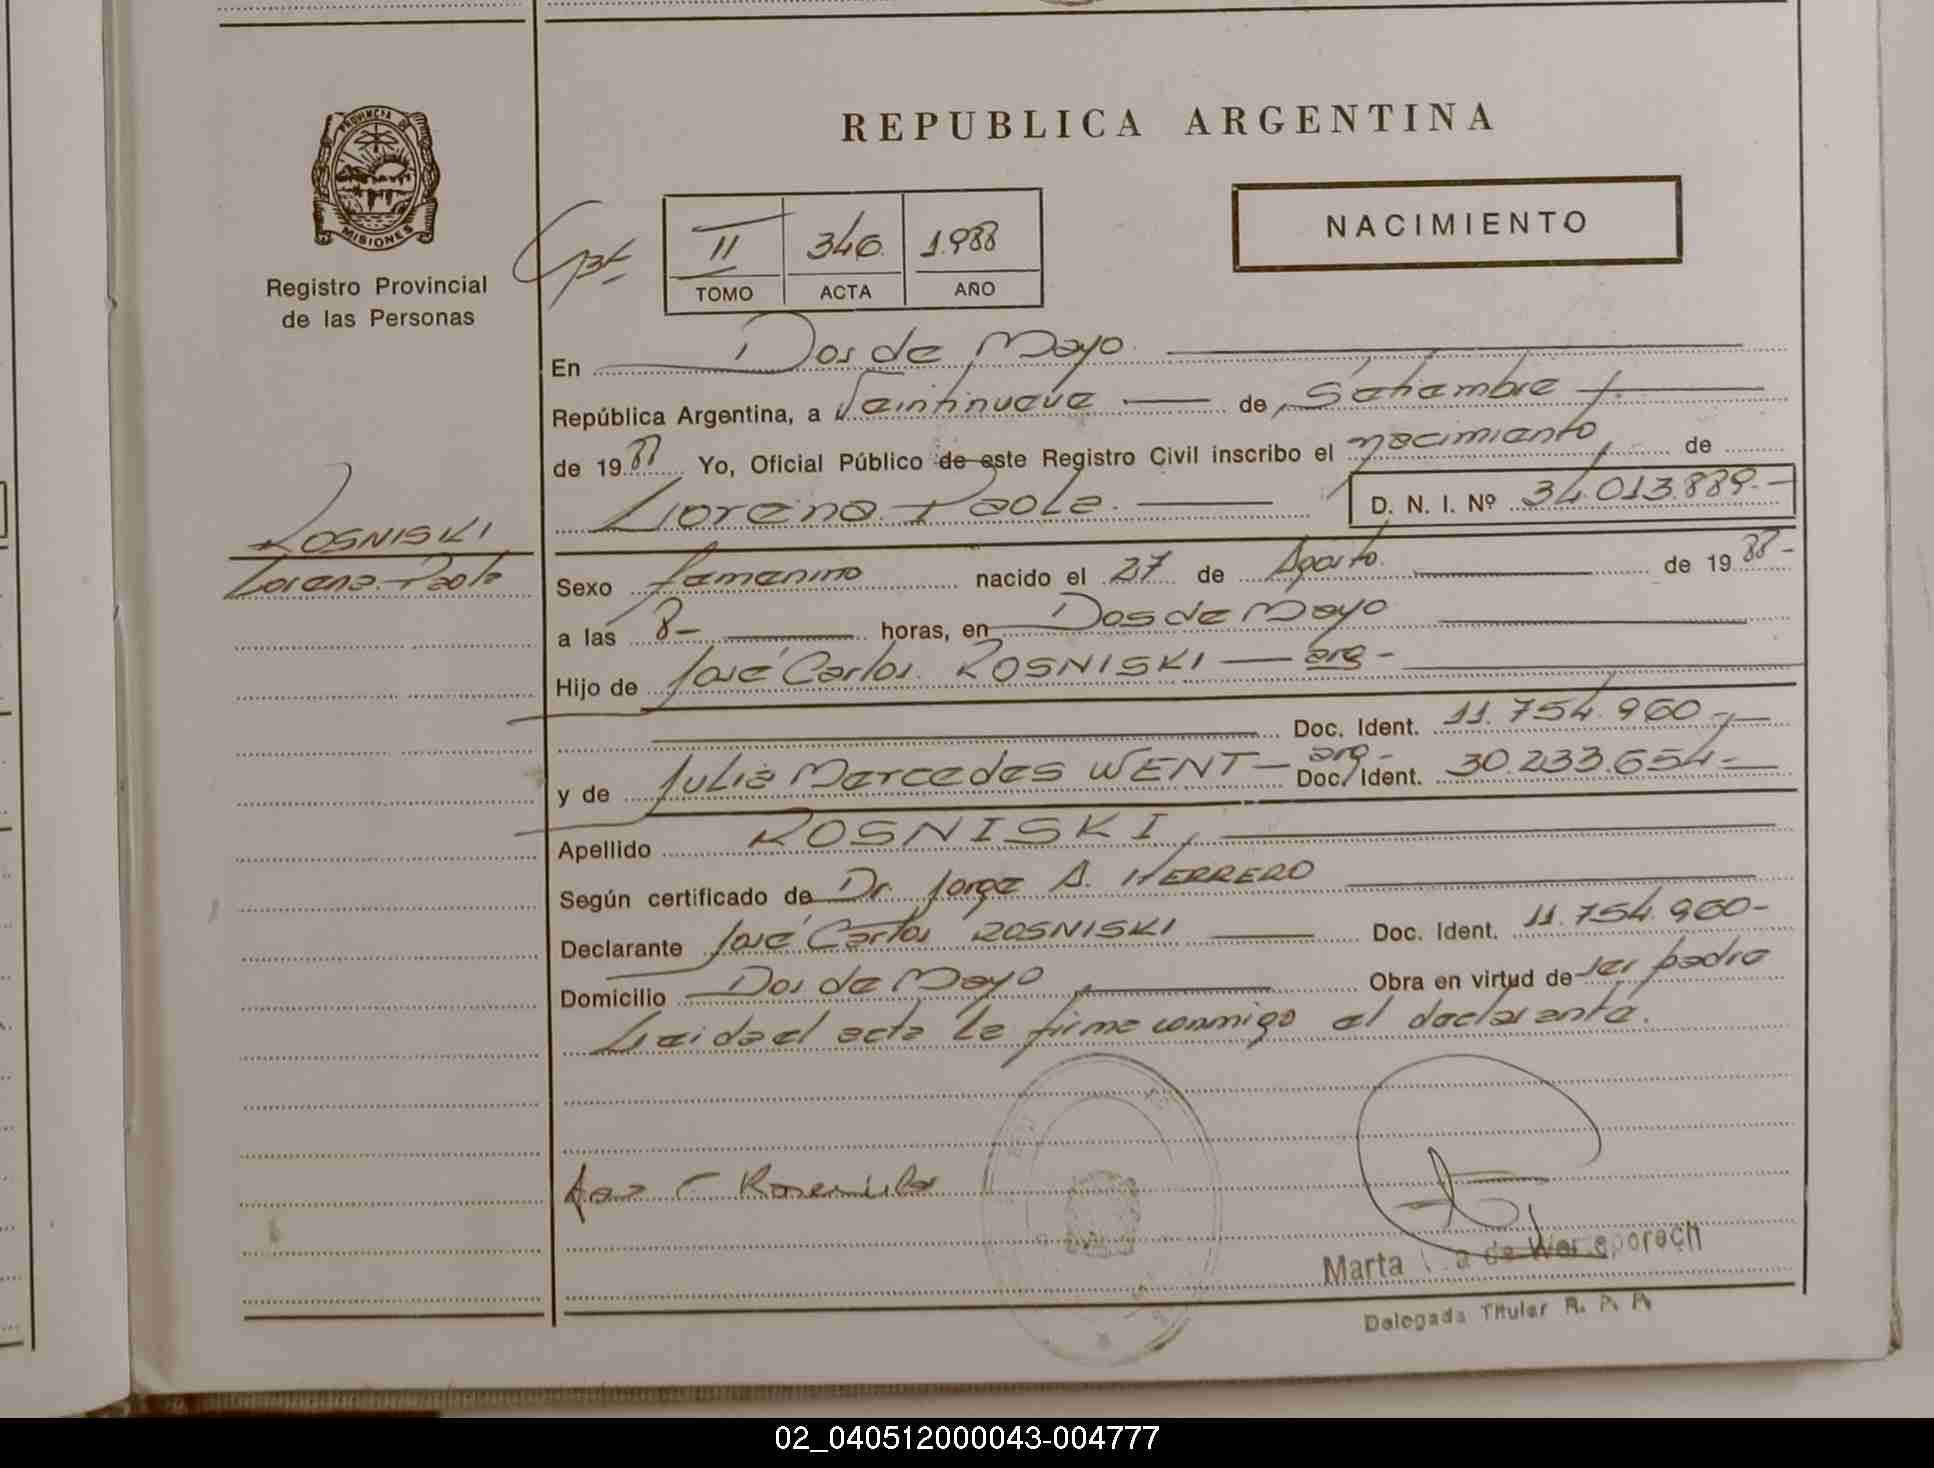 PROVINCIA DE
MISIONES
Registro Provincial
de las Personas
ROSNISKI
Lorena Paola
REPUBLICA ARGENTINA
NACIMIENTO
II 346 1.988
TOMO ACTA AÑO
En Dos de Mayo
República Argentina, a Veintinueve de Setiembre
de 19 88 Yo, Oficial Público de este Registro Civil inscribo el nacimiento de
Lorena Paola. D. N. I. Nº 34.013.889.-
Sexo femenino nacido el 27 de Agosto de 19 88-
a las 8- horas, en Dos de Mayo
Hijo de José Carlos ROSNISKI — arg -
Doc. Ident. 11.754.960-
y de Julia Mercedes WENT - arg - Doc. Ident. 30.233.654-
Apellido ROSNISKI
Según certificado de Dr. Jorge A. HERRERO
Declarante José Carlos ROSNISKI Doc. Ident. 11.754.960-
Domicilio Dos de Mayo Obra en virtud de ser padre
Leida el acta la firma conmigo el declarante.
Marta de
Delegada Titular R. P. P.
02_040512000043-004777